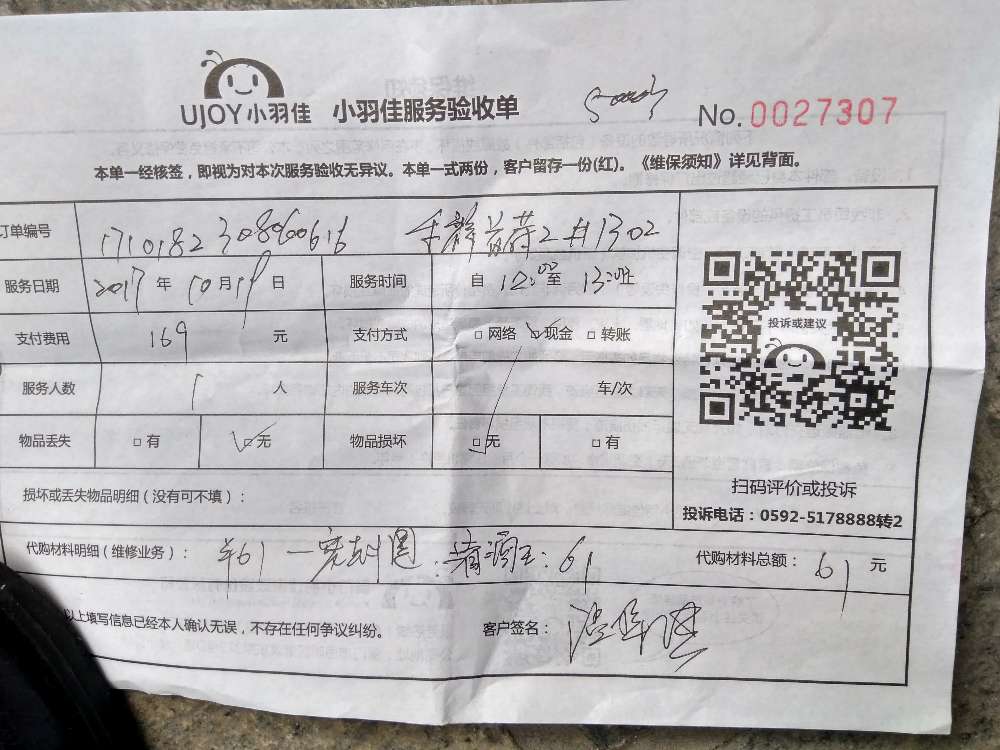 UJOY小羽佳 小羽佳服务验收单 No.0027307
本单一经核签，即视为对本次服务验收无异议。本单一式两份，客户留存一份(红)。《维保须知》详见背面。
订单编号 2#1302
服务日期 2017年10月19日 服务时间 自12:00至13:00止
支付费用 169 元 支付方式 □网络 □现金 □转账
服务人数 1 人 服务车次 车/次
物品丢失 □有 □无 物品损坏 □无 □有
损坏或丢失物品明细（没有可不填）：
投诉或建议
扫码评价或投诉
投诉电话：0592-5178888转2
代购材料明细（维修业务）： 61 代购材料总额：61元
以上填写信息已经本人确认无误，不存在任何争议纠纷。 客户签名：